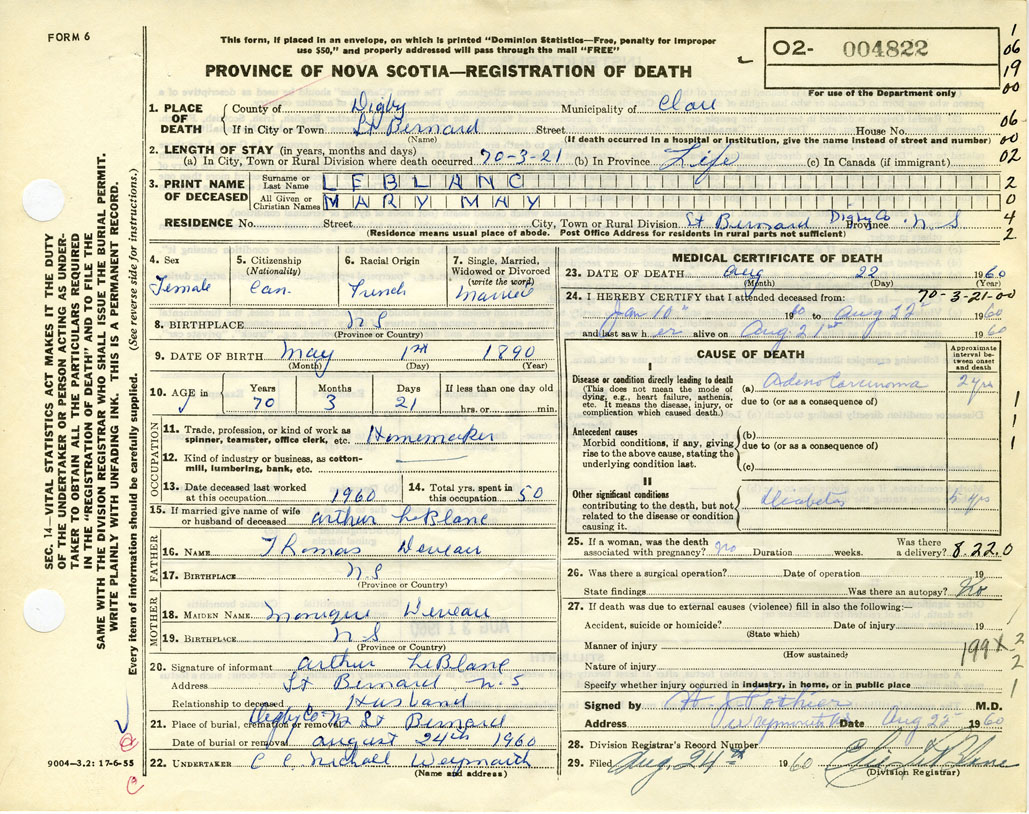 FORM 6
This form, if placed in an envelope, on which is printed "Dominion Statistics—Free, penalty for improper
use $50," and properly addressed will pass through the mail "FREE"
PROVINCE OF NOVA SCOTIA—REGISTRATION OF DEATH
02- 004822
For use of the Department only
1
06
19
00
06
00
02
2
0
4
2
1. PLACE OF DEATH
County of Digby Municipality of Clare
If in City or Town St Bernard Street House No.
(Name) (If death occurred in a hospital or institution, give the name instead of street and number)
2. LENGTH OF STAY (in years, months and days)
(a) In City, Town or Rural Division where death occurred 70-3-21 (b) In Province Life (c) In Canada (if immigrant)
3. PRINT NAME OF DECEASED
Surname or Last Name LEBLANC
All Given or Christian Names MARY MAY
RESIDENCE No. Street City, Town or Rural Division St Bernard Digby Co Province N S
(Residence means usual place of abode. Post Office Address for residents in rural parts not sufficient)
4. Sex
Female
5. Citizenship
(Nationality)
Can.
6. Racial Origin
French
7. Single, Married,
Widowed or Divorced
(write the word)
Married
8. BIRTHPLACE N S
(Province or Country)
9. DATE OF BIRTH May 1st 1890
(Month) (Day) (Year)
10. AGE in
Years 70
Months 3
Days 21
If less than one day old
hrs. or min.
OCCUPATION
11. Trade, profession, or kind of work as
spinner, teamster, office clerk, etc. Homemaker
12. Kind of industry or business, as cotton-
mill, lumbering, bank, etc.
13. Date deceased last worked
at this occupation 1960
14. Total yrs. spent in
this occupation 50
15. If married give name of wife
or husband of deceased Arthur LeBlanc
FATHER
16. NAME Thomas Deveau
17. BIRTHPLACE N S
(Province or Country)
MOTHER
18. MAIDEN NAME Monique Deveau
19. BIRTHPLACE N S
(Province or Country)
20. Signature of informant Arthur LeBlanc
Address St Bernard N.S.
Relationship to deceased Husband
21. Place of burial, cremation or removal Digby Co. N St Bernard
Date of burial or removal August 24th 1960
22. UNDERTAKER Weymouth
(Name and address)
MEDICAL CERTIFICATE OF DEATH
23. DATE OF DEATH Aug 22 1960
(Month) (Day) (Year)
24. I HEREBY CERTIFY that I attended deceased from: 70-3-21-00
Jan 10th 1960 to Aug 22nd 1960
and last saw her alive on Aug. 21st 1960
CAUSE OF DEATH
Approximate
interval be-
tween onset
and death
I
Disease or condition directly leading to death
(This does not mean the mode of
dying, e.g., heart failure, asthenia,
etc. It means the disease, injury, or
complication which caused death.)
(a) Adenocarcinoma 2 yrs
due to (or as a consequence of)
Antecedent causes
Morbid conditions, if any, giving
rise to the above cause, stating the
underlying condition last.
(b)
due to (or as a consequence of)
(c)
1
1
1
II
Other significant conditions
contributing to the death, but not
related to the disease or condition
causing it.
Diabetes 5 yrs
25. If a woman, was the death
associated with pregnancy? no Duration weeks.
Was there
a delivery? 8.22.0
26. Was there a surgical operation? Date of operation 19
State findings Was there an autopsy? No
27. If death was due to external causes (violence) fill in also the following:—
Accident, suicide or homicide? Date of injury 19
(State which)
Manner of injury
(How sustained)
Nature of injury
199X
1
2
2
1
Specify whether injury occurred in industry, in home, or in public place
Signed by Pothier M.D.
Address Weymouth Date Aug 22 1960
28. Division Registrar's Record Number
29. Filed Aug. 24th 1960
(Division Registrar)
SEC. 14—VITAL STATISTICS ACT MAKES IT THE DUTY
OF THE UNDERTAKER OR PERSON ACTING AS UNDER-
TAKER TO OBTAIN ALL THE PARTICULARS REQUIRED
IN THE "REGISTRATION OF DEATH" AND TO FILE THE
SAME WITH THE DIVISION REGISTRAR WHO SHALL ISSUE THE BURIAL PERMIT.
WRITE PLAINLY WITH UNFADING INK. THIS IS A PERMANENT RECORD.
Every item of information should be carefully supplied. (See reverse side for instructions.)
9004—3.2: 17-6-55